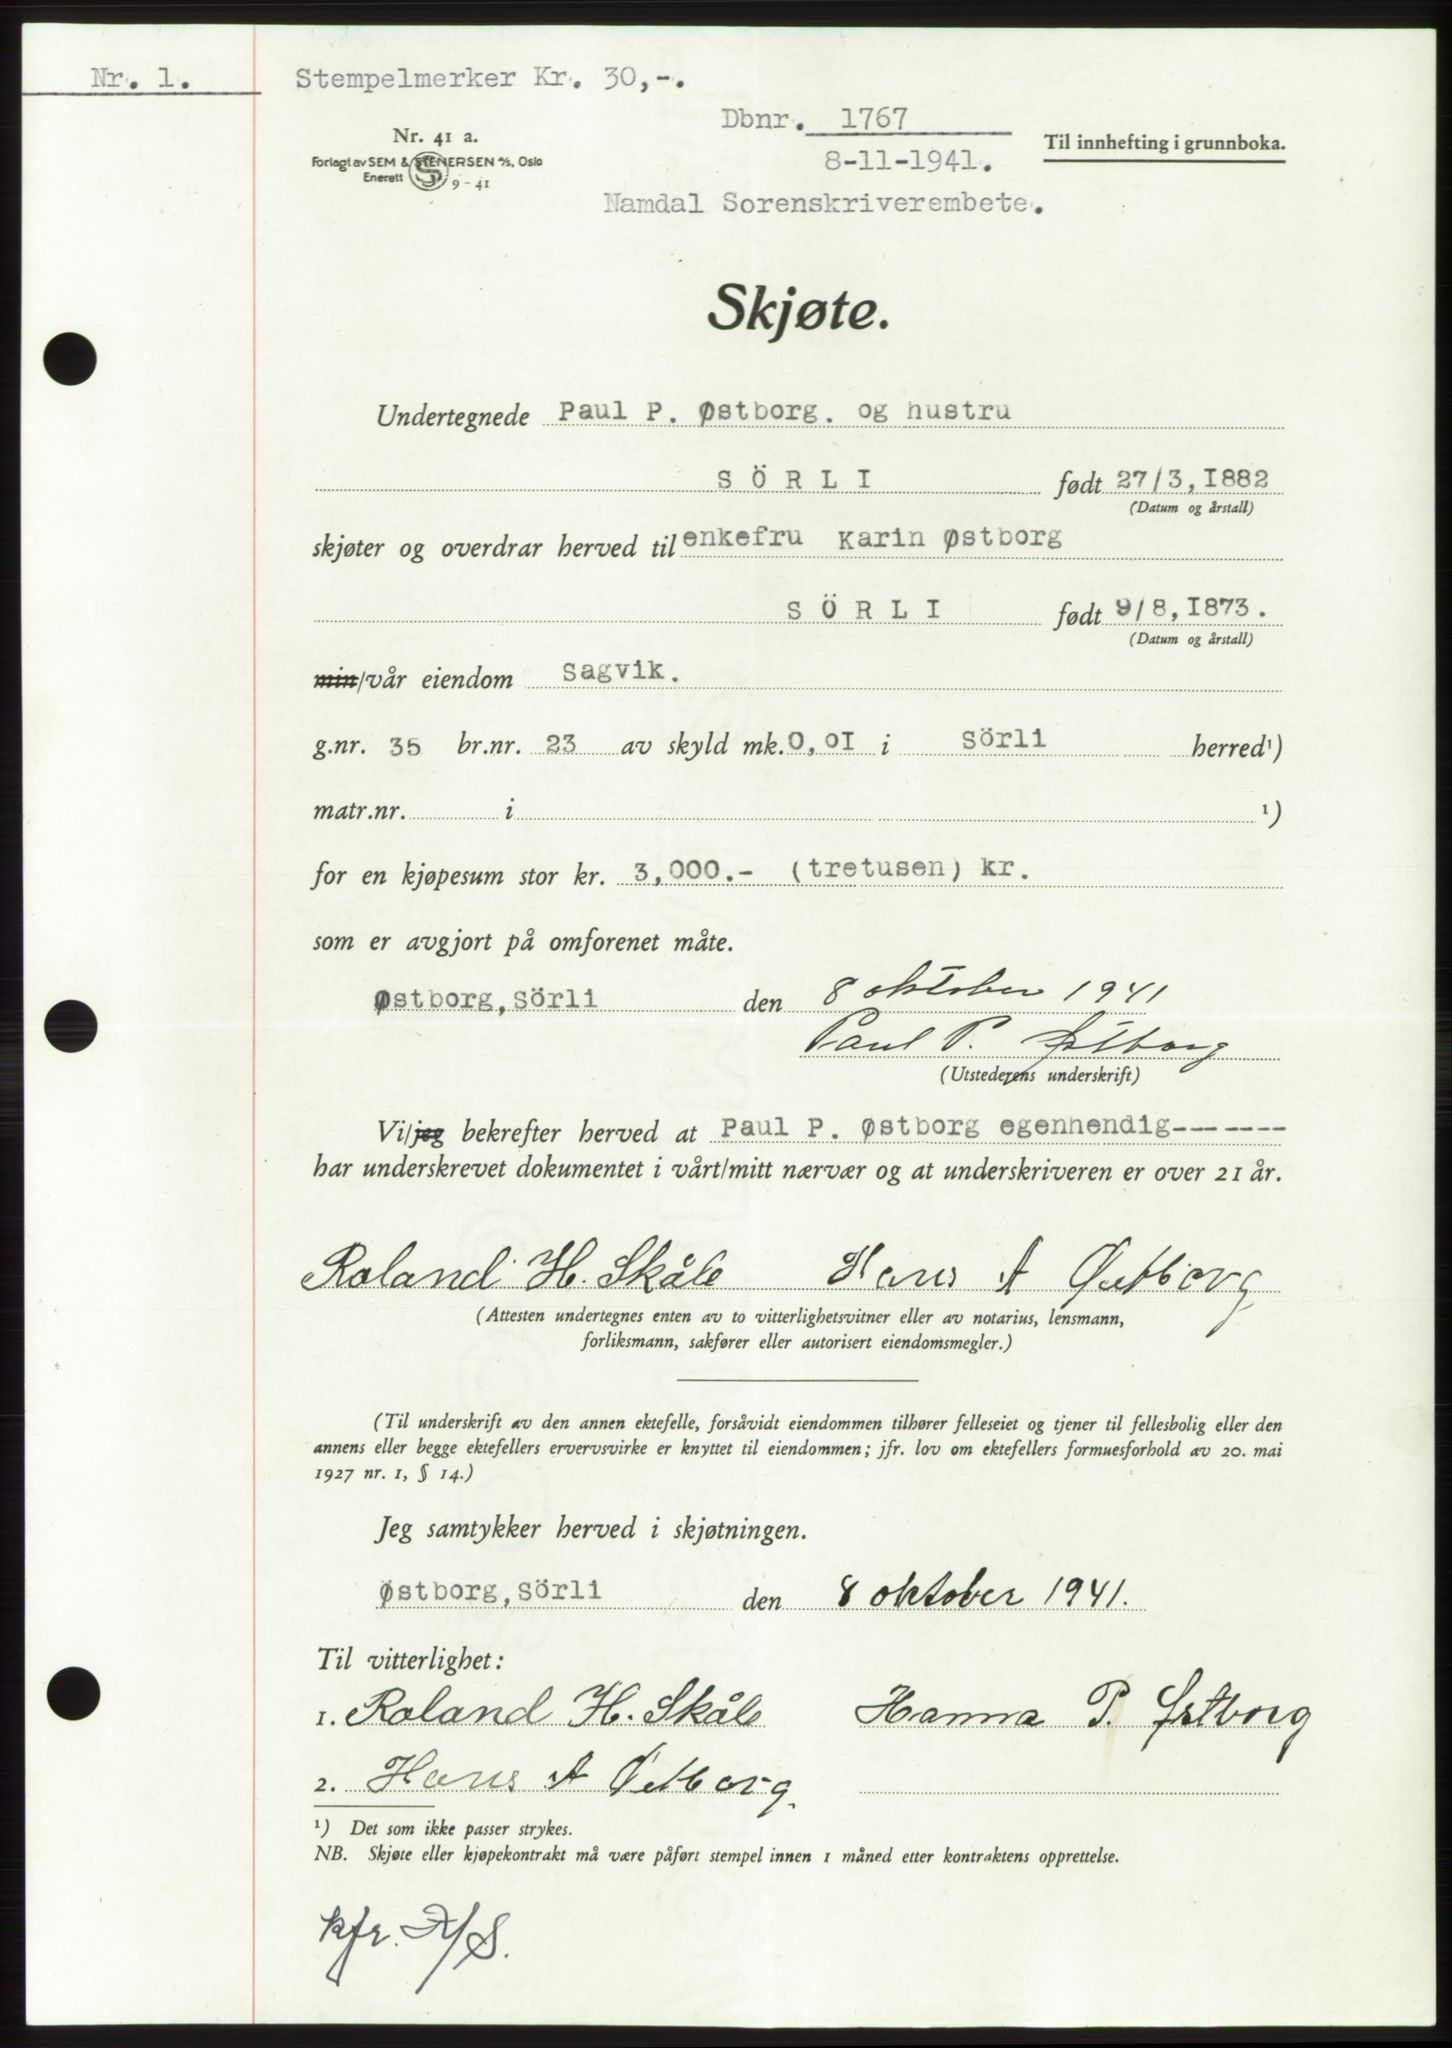 Nr. 1.
Stempelmerker Kr. 30,-.
Dbnr. 1767
Nr. 41 a.
Til innhefting i grunnboka.
Forlagt av SEM & STENERSEN A/S, Oslo
Enerett
9-41
8-11-1941.
Namdal Sorenskriverembete.
Skjøte.
Undertegnede Paul P. Østborg. og hustru
SÖRLI født 27/3, 1882
(Datum og årstall)
skjøter og overdrar herved til enkefru Karin Østborg
SÖRLI født 9/8, 1873.
(Datum og årstall)
min/vår eiendom Sagvik.
g.nr. 35 br.nr. 23 av skyld mk. 0,01 i Sörli herred¹)
matr.nr. i ¹)
for en kjøpesum stor kr. 3,000.- (tretusen) kr.
som er avgjort på omforenet måte.
Østborg, Sörli den 8 oktober 1941
Paul P. Østborg
(Utstederens underskrift)
Vi/jeg bekrefter herved at Paul P. Østborg egenhendig-------
har underskrevet dokumentet i vårt/mitt nærvær og at underskriveren er over 21 år.
Roland H. Skåle Hans A Østborg
(Attesten undertegnes enten av to vitterlighetsvitner eller av notarius, lensmann,
forliksmann, sakfører eller autorisert eiendomsmegler.)
(Til underskrift av den annen ektefelle, forsåvidt eiendommen tilhører felleseiet og tjener til fellesbolig eller den
annens eller begge ektefellers ervervsvirke er knyttet til eiendommen; jfr. lov om ektefellers formuesforhold av 20. mai
1927 nr. 1, § 14.)
Jeg samtykker herved i skjøtningen.
Østborg, Sörli den 8 oktober 1941.
Til vitterlighet:
1. Roland H. Skåle Hanna P. Østborg
2. Hans A Østborg.
¹) Det som ikke passer strykes.
NB. Skjøte eller kjøpekontrakt må være påført stempel innen 1 måned etter kontraktens opprettelse.
kfr.